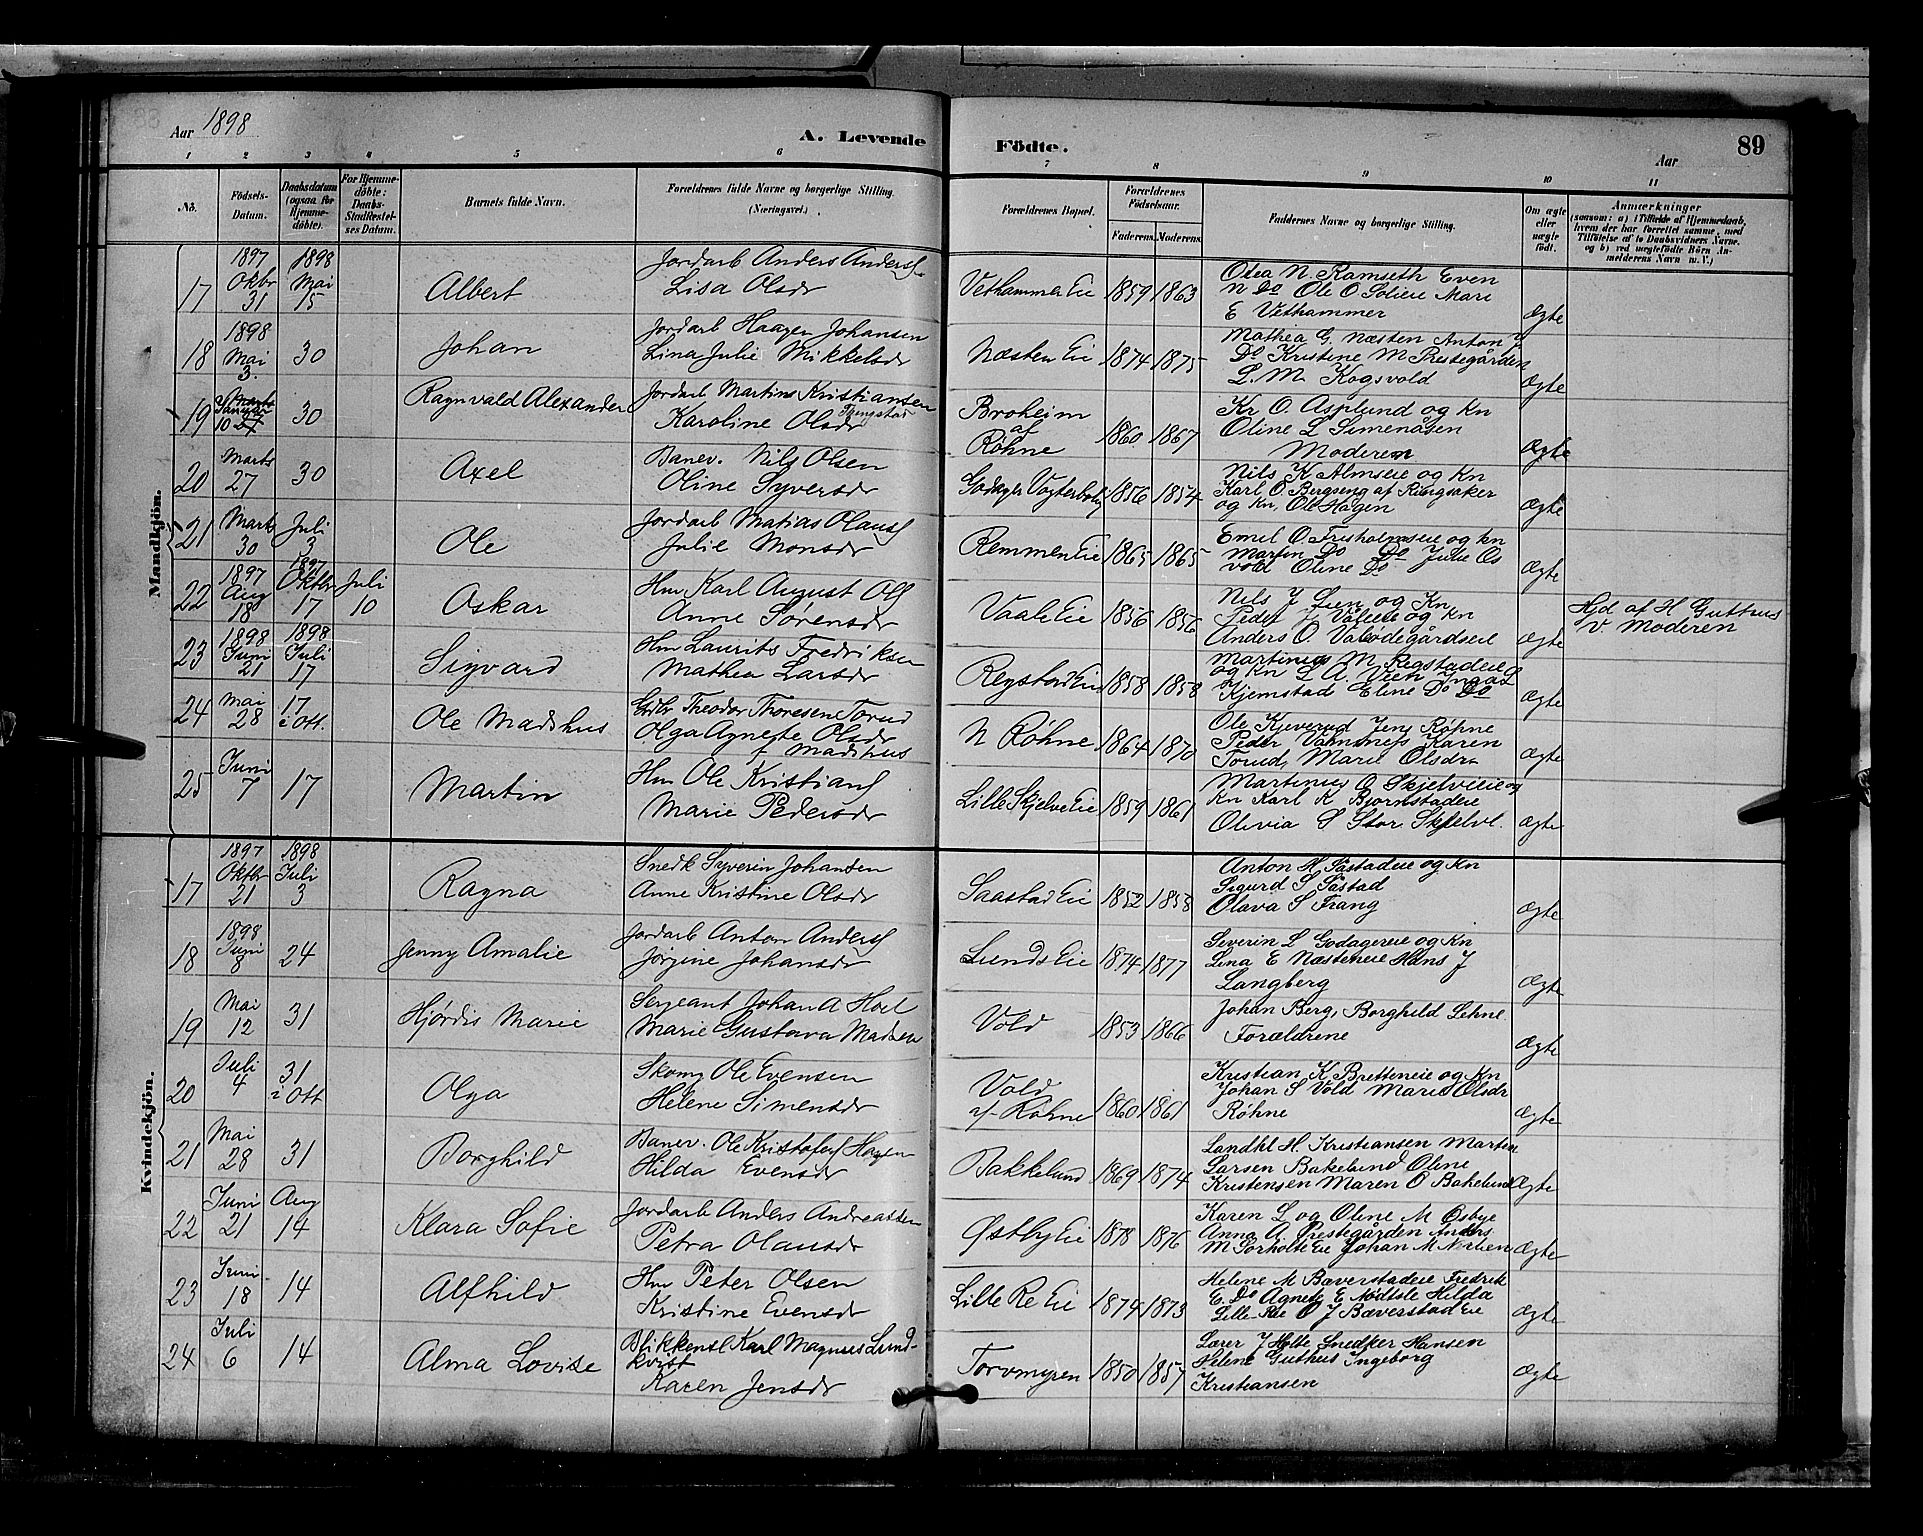 Aar 1898
A. Levende Födte.
Aar
89
1 2 3 4 5 6 7 8 9 10 11
No.
Födsels-Datum.
Daabsdatum (ogsaa for Hjemmedöbte).
For Hjemmedöbte: Daabs-Stadfæstelses Datum.
Barnets fulde Navn.
Forældrenes fulde Navne og borgerlige Stilling. (Næringsvei.)
Forældrenes Bopæl.
Forældrenes Födselsaar.
Faderens. Moderens.
Faddernes Navne og borgerlige Stilling.
Om ægte eller uægte födt.
Anmærkninger
(saasom: a) i Tilfælde af Hjemmedaab, hvem der har forrettet samme, med Tilföielse af to Daabsvidners Navne, og b) ved uægtefödte Börn Anmelderens Navn m. V.)
Mandkjön.
17 1897 Oktbr 31 1898 Mai 15 Albert Jordarb Anders Anders
Lisa Olsdr Vethammer Eie 1859 1863 Otea N Ramseth Even
N Do Ole O Solieie Mari
E Vethammer Ægte
18 1898 Mai 3. 30 Johan Jordarb Haagen Johansen
Lina Julie Mikkelsdr Næsten Eie 1874 1875 Mathea G. Næsten Anton
Do Kristine M Prestegården
L. M Kogsvold Ægte
19 Januar 10 30 Ragnvald Alexander Jordarb Martins Kristiansen
Karoline Olsdr Broheim af Røhne 1860 1867 Kr O. Asplund og Kn
Oline L Simensen
Moderen Ægte
20 Marts 27 30 Axel Banev. Nils Olsen
Oline Syversdr Godager Vogterbolig 1856 1854 Nils K Almseie og Kn
Karl O. Bergseng af Ringsaker
og Kn, Ole Hagen Ægte
21 Marts 30 Juli 3 Ole Jordarb Matias Olaus
Julie Monsdr Remmen Eie 1865 1865 Emil O Frisholmseie og Kn
Martin Do Do Julie Os
vold Oline Do Ægte
22 1897 Aug 18 1897 Oktbr 17 Juli 10 Oskar Hm Karl August Ols
Anne Sørensdr Vaale Eie 1856 1856 Nils J Lien og Kn
Peder Valeeie og Kn
Anders O. Valødegårdseie Ægte Hjd af H Guthus
v. Moderen
23 1898 Juni 21 1898 Juli 17 Sigvard Hm Laurits Fredriksen
Mathea Larsdr Regstad Eie 1858 1858 Martinius M Regstadeie
og Kn L A. Vien Inga L
Kjemstad Eline Do Do Ægte
24 Mai 28 17 i Ott. Ole Madshus Gdbr Theodor Thoresen Torud
Olga Agnethe Olsdr
f Madshus N Røhne 1864 1870 Ole Kjeverud Jens Røhne
Peder Vannæs Karen
Torud, Marie Olsdr Ægte
25 Juni 7 17 Martin Hm Ole Kristians
Marie Pedersdr Lille Skjelve Eie 1859 1861 Martinius O Skjelveeie og
Kn Karl K Bjørnstadeie
Olivia S Stor Skjelve. Ægte
Kvindekjön.
17 1897 Oktbr 21 1898 Juli 3 Ragna Snedk Syverin Johansen
Anne Kristine Olsdr Saastad Eie 1852 1858 Anton H Såstadeie og Kn
Sigurd S Såstad
Olava S Frang Ægte
18 1898 Juni 8 24 Jenny Amalie Jordarb Anton Anders
Jorgine Johansdr Lunds Eie 1874 1877 Severin L Godagereie og Kn
Lina E Næsteneie Hans J
Langberg Ægte
19 Mai 12 31 Hjørdis Marie Sergeant Johan A Hoel
Marie Gustava Madsen Vold 1853 1866 Johan Berg, Borghild Lehne
Forældrene Ægte
20 Juli 4 31 i Ott Olga Skomg Ole Evensen
Helene Simensdr Vold af Røhne 1860 1861 Kristian K Bretteneie og Kn
Johan S Vold Marie Olsdr
Røhne Ægte
21 Mai 28 31 Borghild Banev. Ole Kristofers Hagen
Hilda Evensdr Bakkelund 1869 1874 Landhl H. Kristiansen Martin
Larsen Bakelund Oline
Kristensen Maren O Bakelund Ægte
22 Juni 21 Aug 14 Klara Sofie Jordarb Anders Andreassen
Petra Olausdr Østby Eie 1878 1876 Karen L og Oline M Østbye
Anna A. Prestegården Anders
M Sorholte Eie Johan M Ægte
23 Juni 18 14 Alfhild Hm Peter Olsen
Kristine Evensdr Lille Re Eie 1874 1873 Helene M Bæverstadeie Fredrik
E. Do Agnete E Hilda
Lille Re O J Bæverstad Eie Ægte
24 Juli 6 14 Alma Lovise Blikkensl Karl Magnus Lund-
kvist
Karen Jensdr Torvmyren 1850 1857 Lærer J Holte Snedker Hansen
Helene Guthus Ingeborg
Kristiansen Ægte